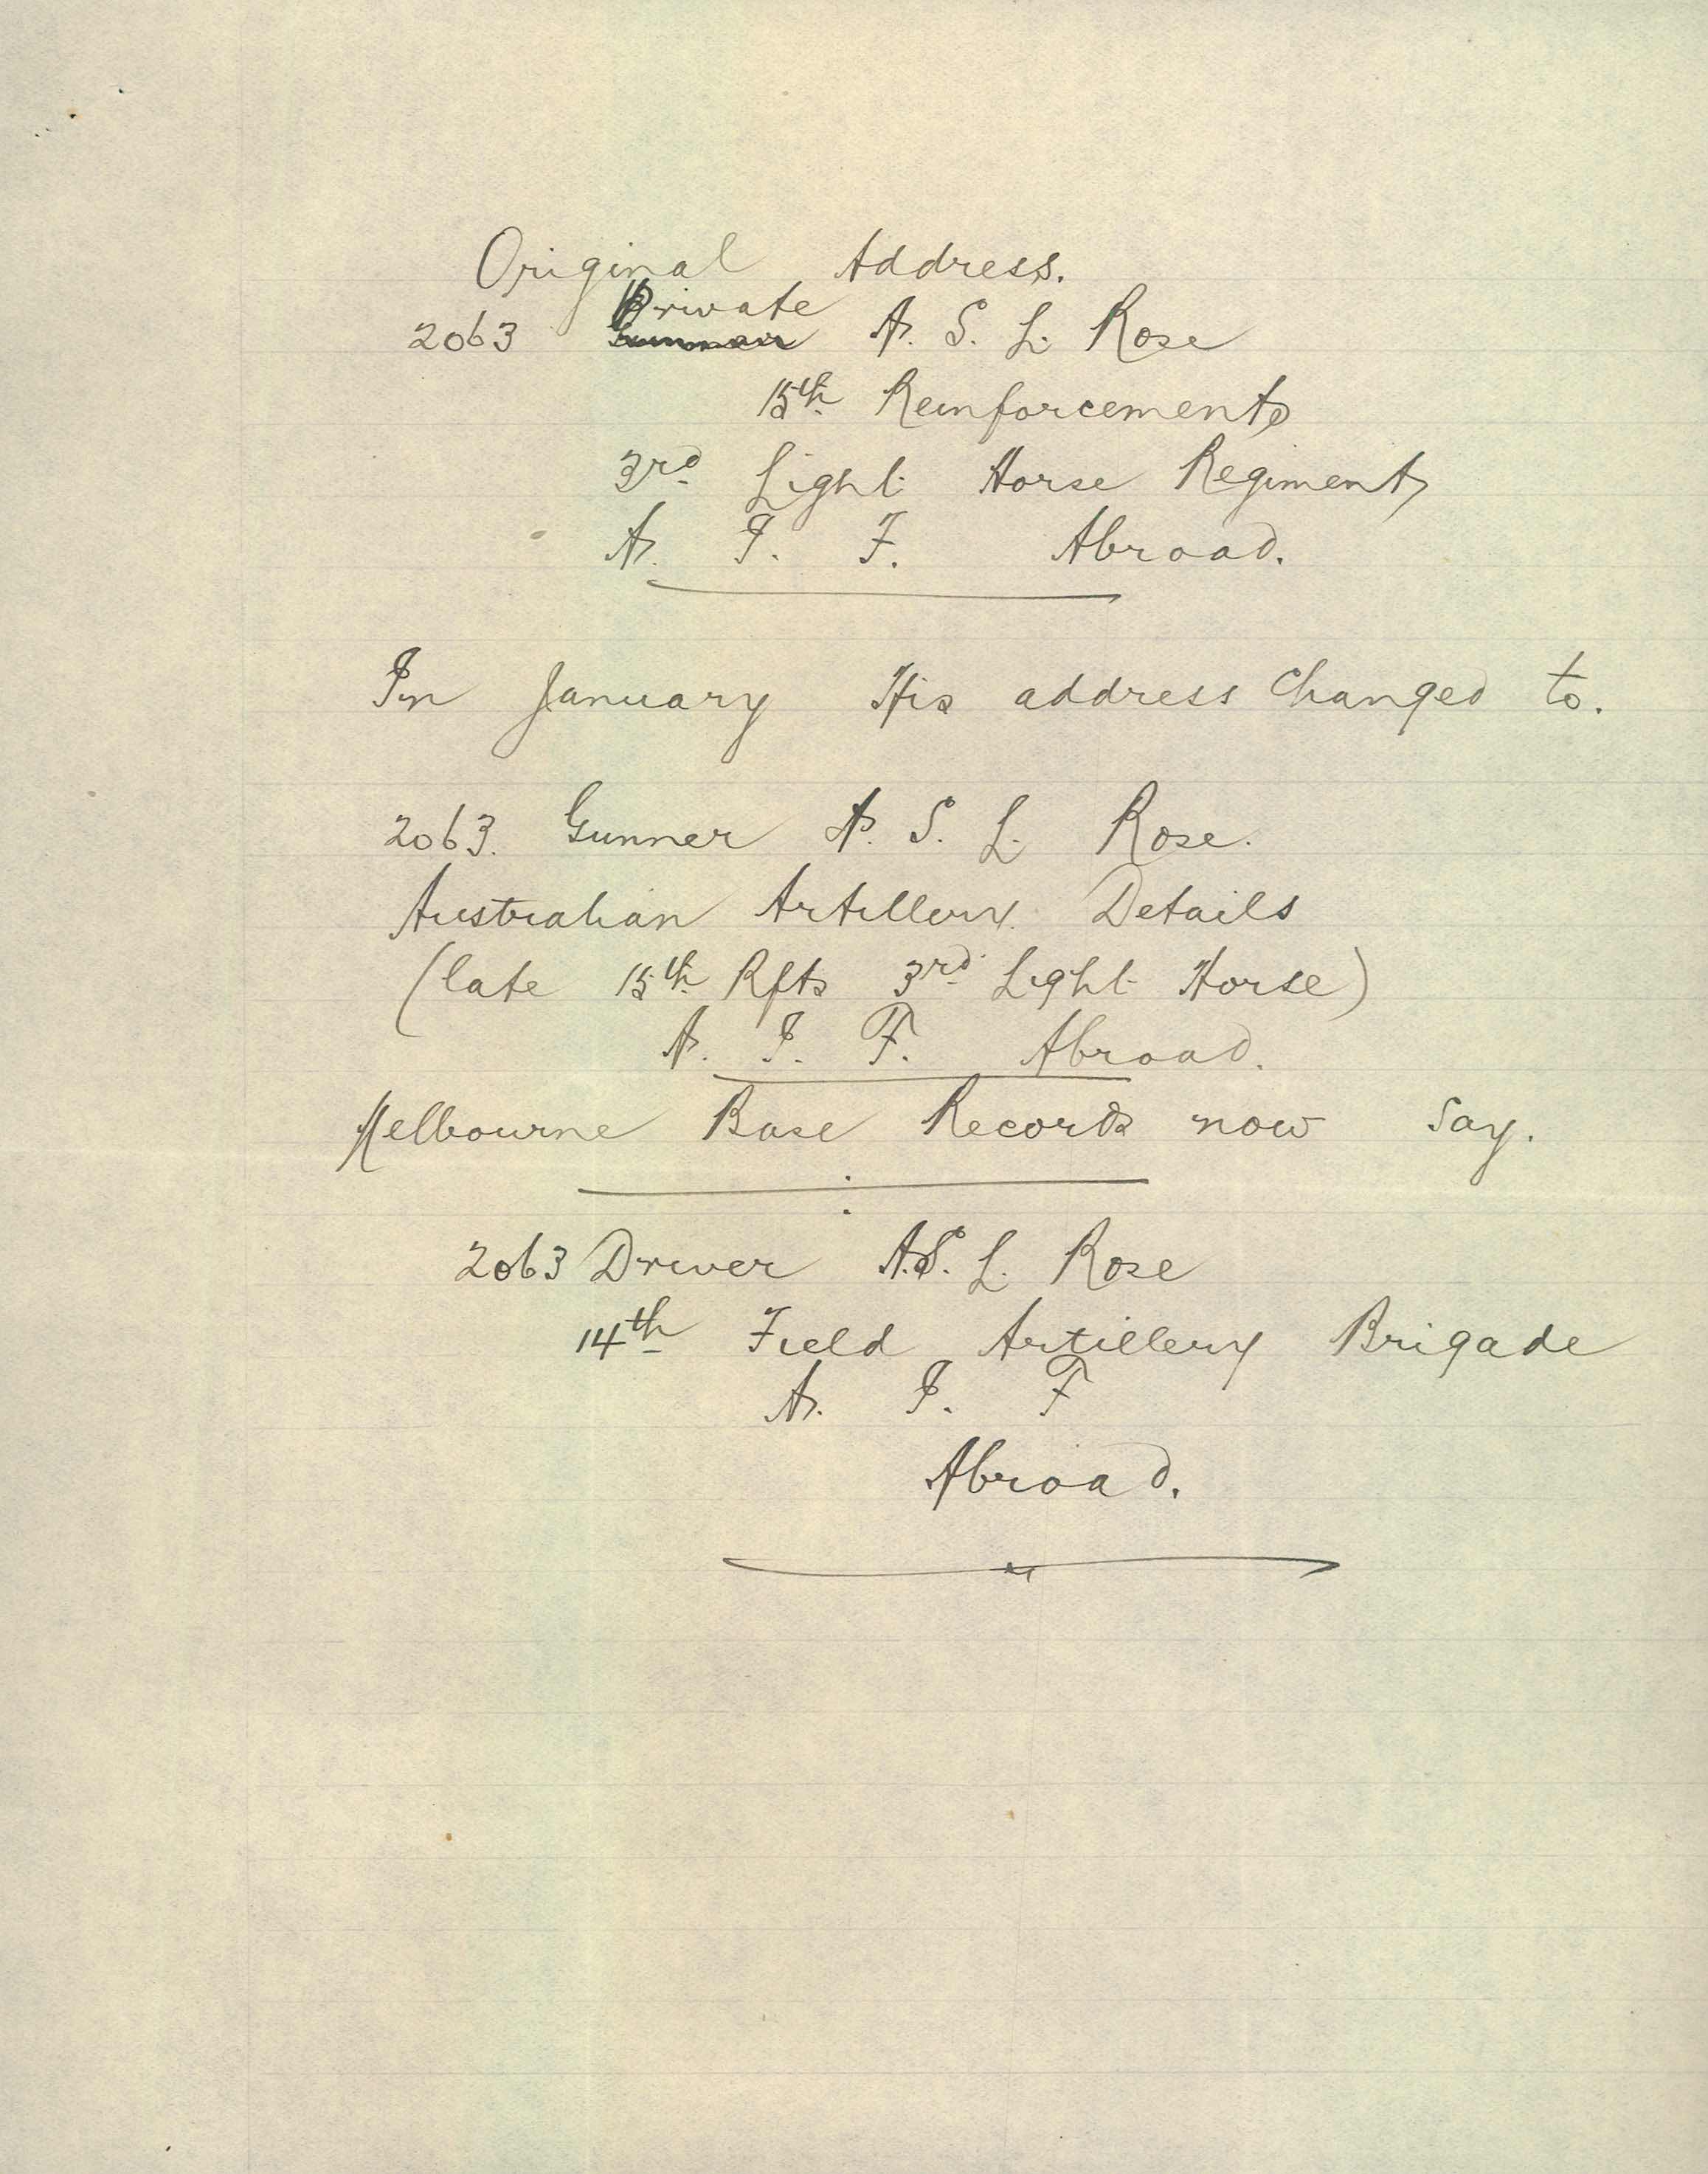 Original Address.
Private
2063 Gunner A. S. L. Rose
15th Reinforcements
3rd Light Horse Regiment
A. I. F. Abroad.
In January His address Changed to.
2063. Gunner A. S. L. Rose.
Australian Artillery Details
(late 15th Rfts 3rd Light Horse)
A. I. F. Abroad.
Melbourne Base Records now say.
2063 Driver A.S. L. Rose
14th Field Artillery Brigade
A. I. F
Abroad.